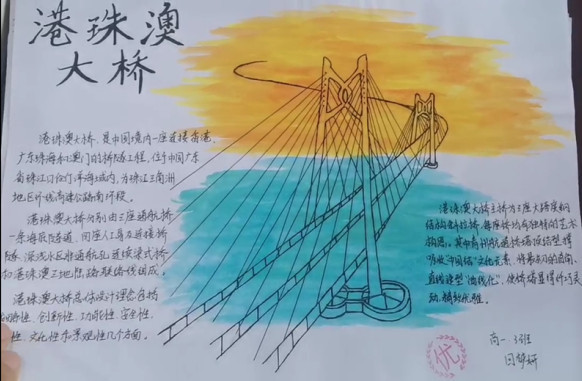 港珠澳
大桥
港珠澳大桥,是中国境内一座连接香港、
广东珠海和澳门的桥隧工程,位于中国广东
省珠江口伶仃洋海域内,为珠江三角洲
地区环线高速公路南环段。
港珠澳大桥分别由三座通航桥
一条海底隧道、四座人工岛及连接桥
隧、深浅水区非通航孔连续梁式桥
和港珠澳三地陆路联络线组成。
港珠澳大桥总体设计理念包括
性、创新性、功能性、安全性、
性、文化性和景观性几个方面。
港珠澳大桥主桥为三座大跨度钢
结构斜拉桥,每座桥均有独特的艺术
构思。其中青州航道桥塔顶结型撑
吸收"中国结"文化元素,将最初的直角、
直线造型"曲线化",使桥塔显得纤巧灵
动、精致优雅。
优
高一.3班